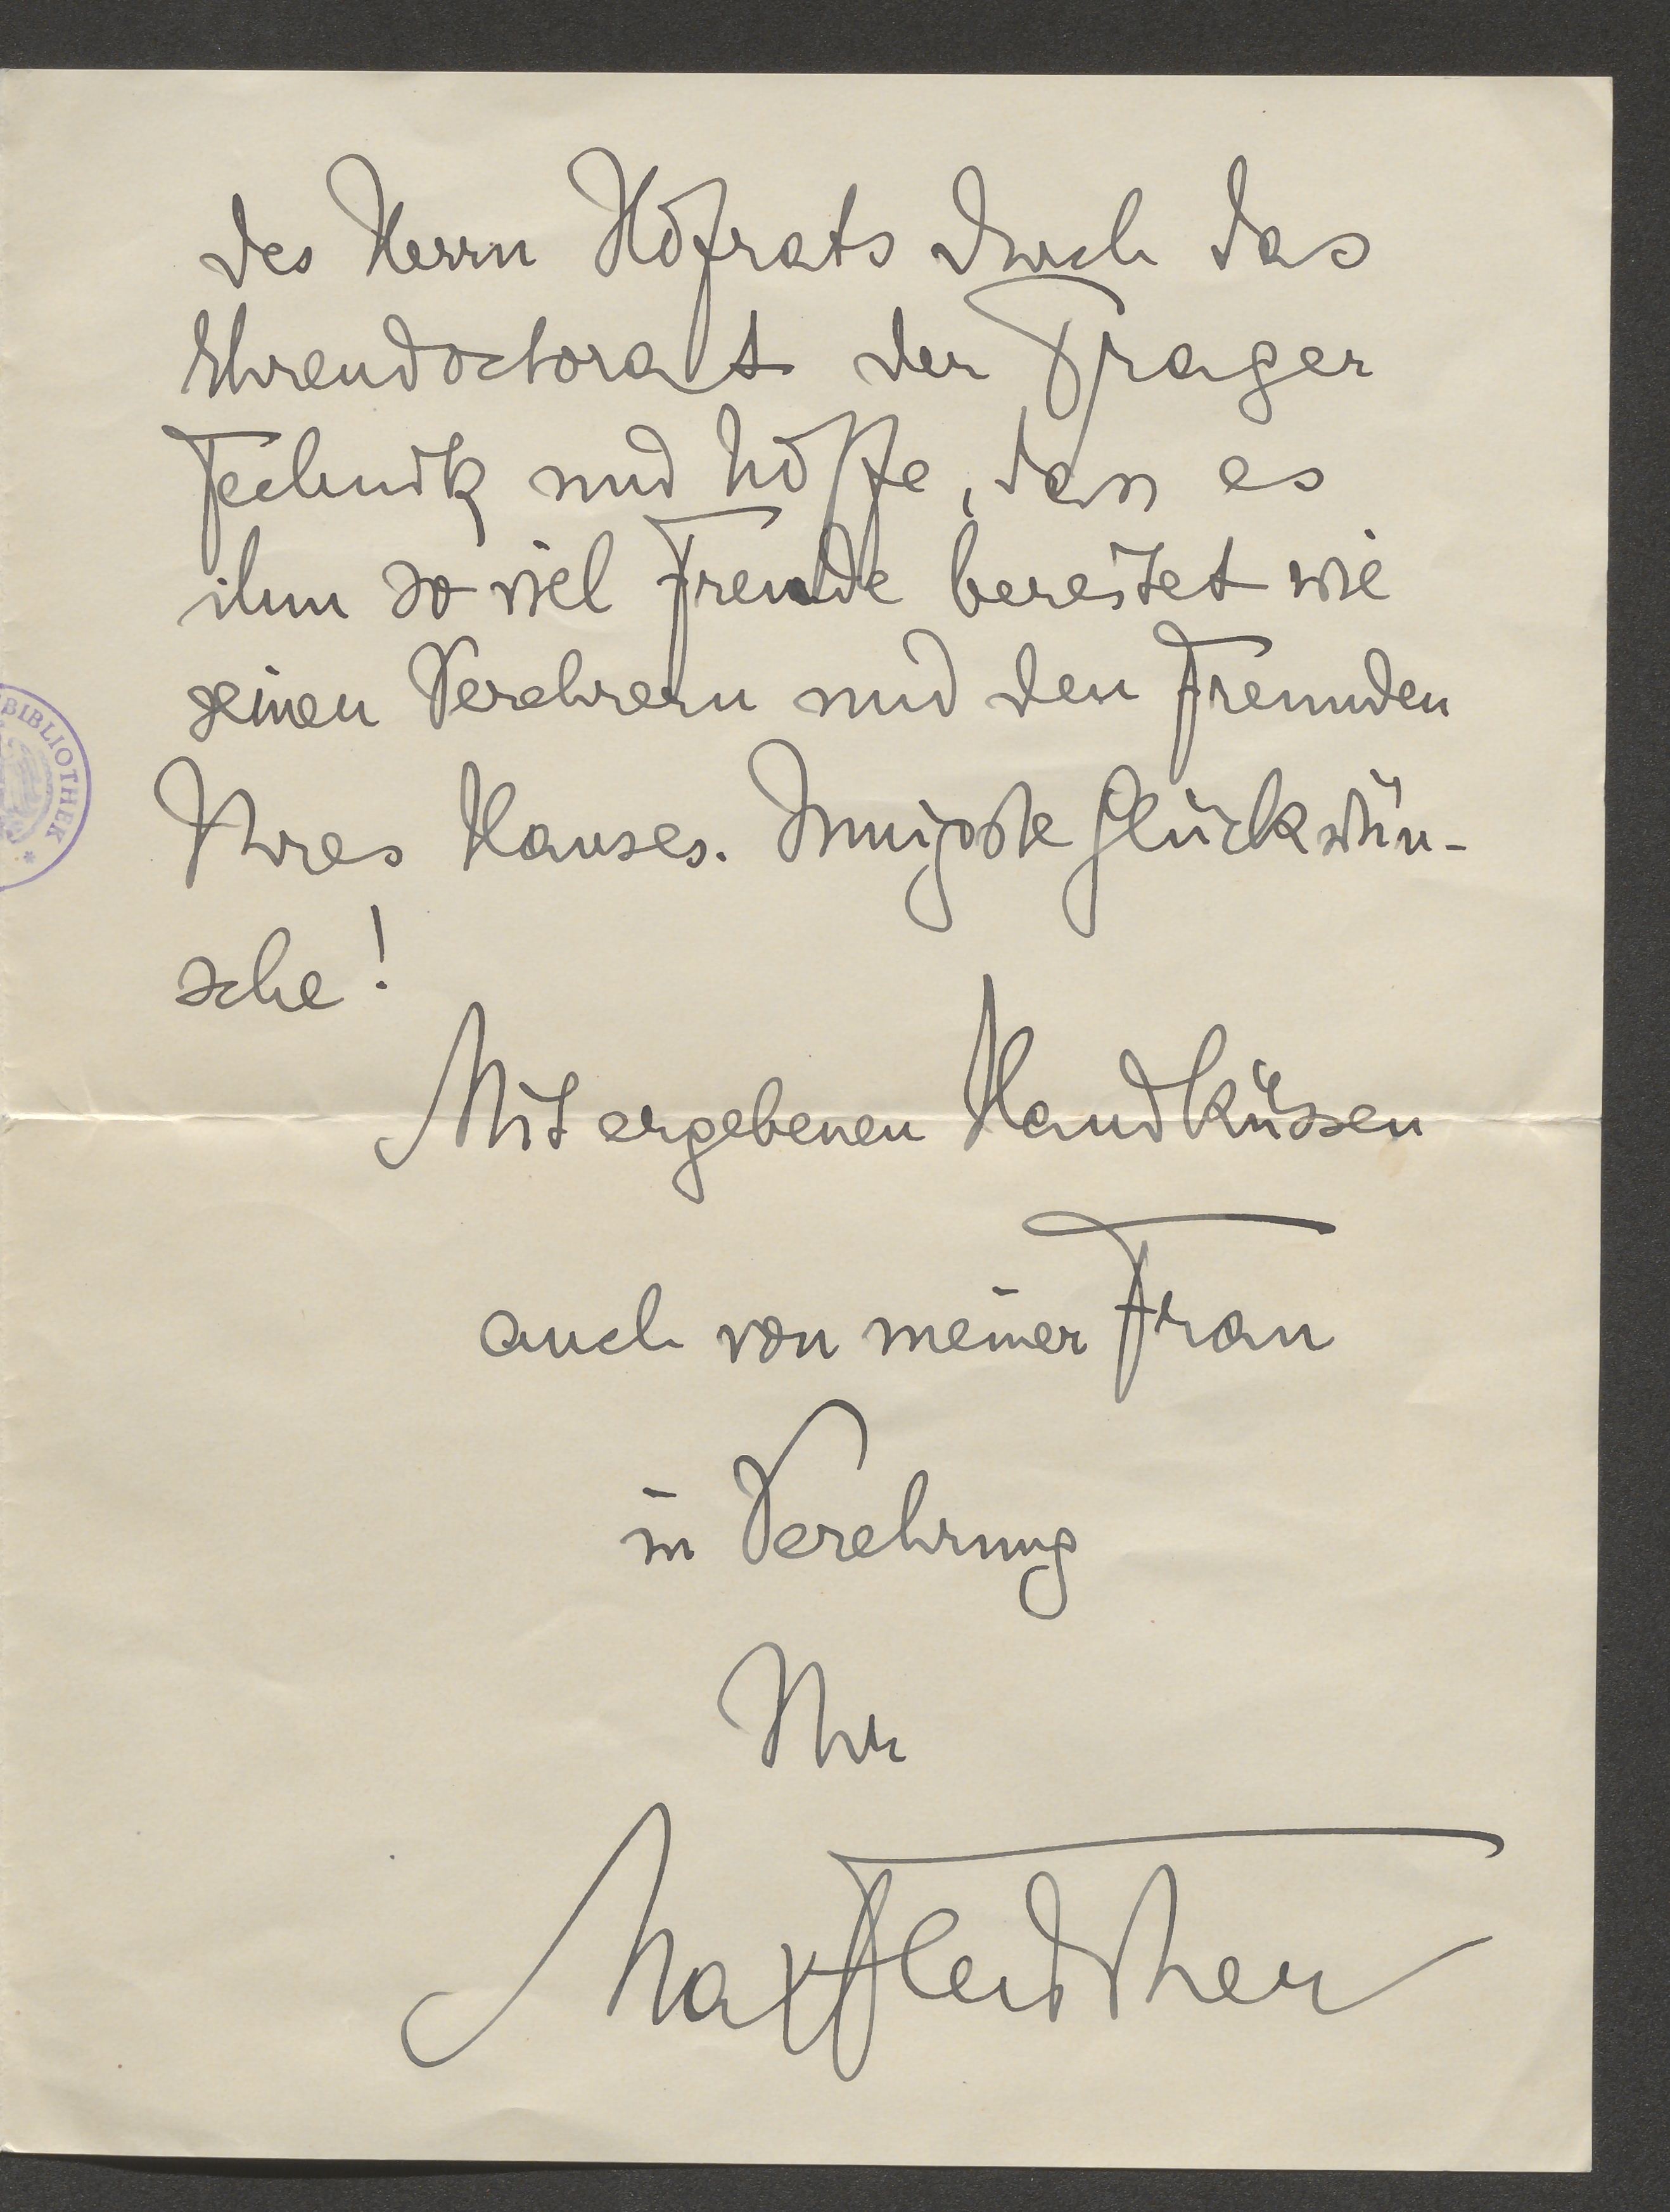 des Herrn Hofrats durch das
Ehrendoctorat der Prager
Technik und hoffe, dass es
ihm so viel Freude bereitet wie
seinen Verehrern und den Freunden
Ihres Hauses. Innigste Glückwün-
sche!
Mit ergebenen Handküssen
auch von meiner Frau
in Verehrung
Ihr
Max Fleischer
BIBLIOTHEK